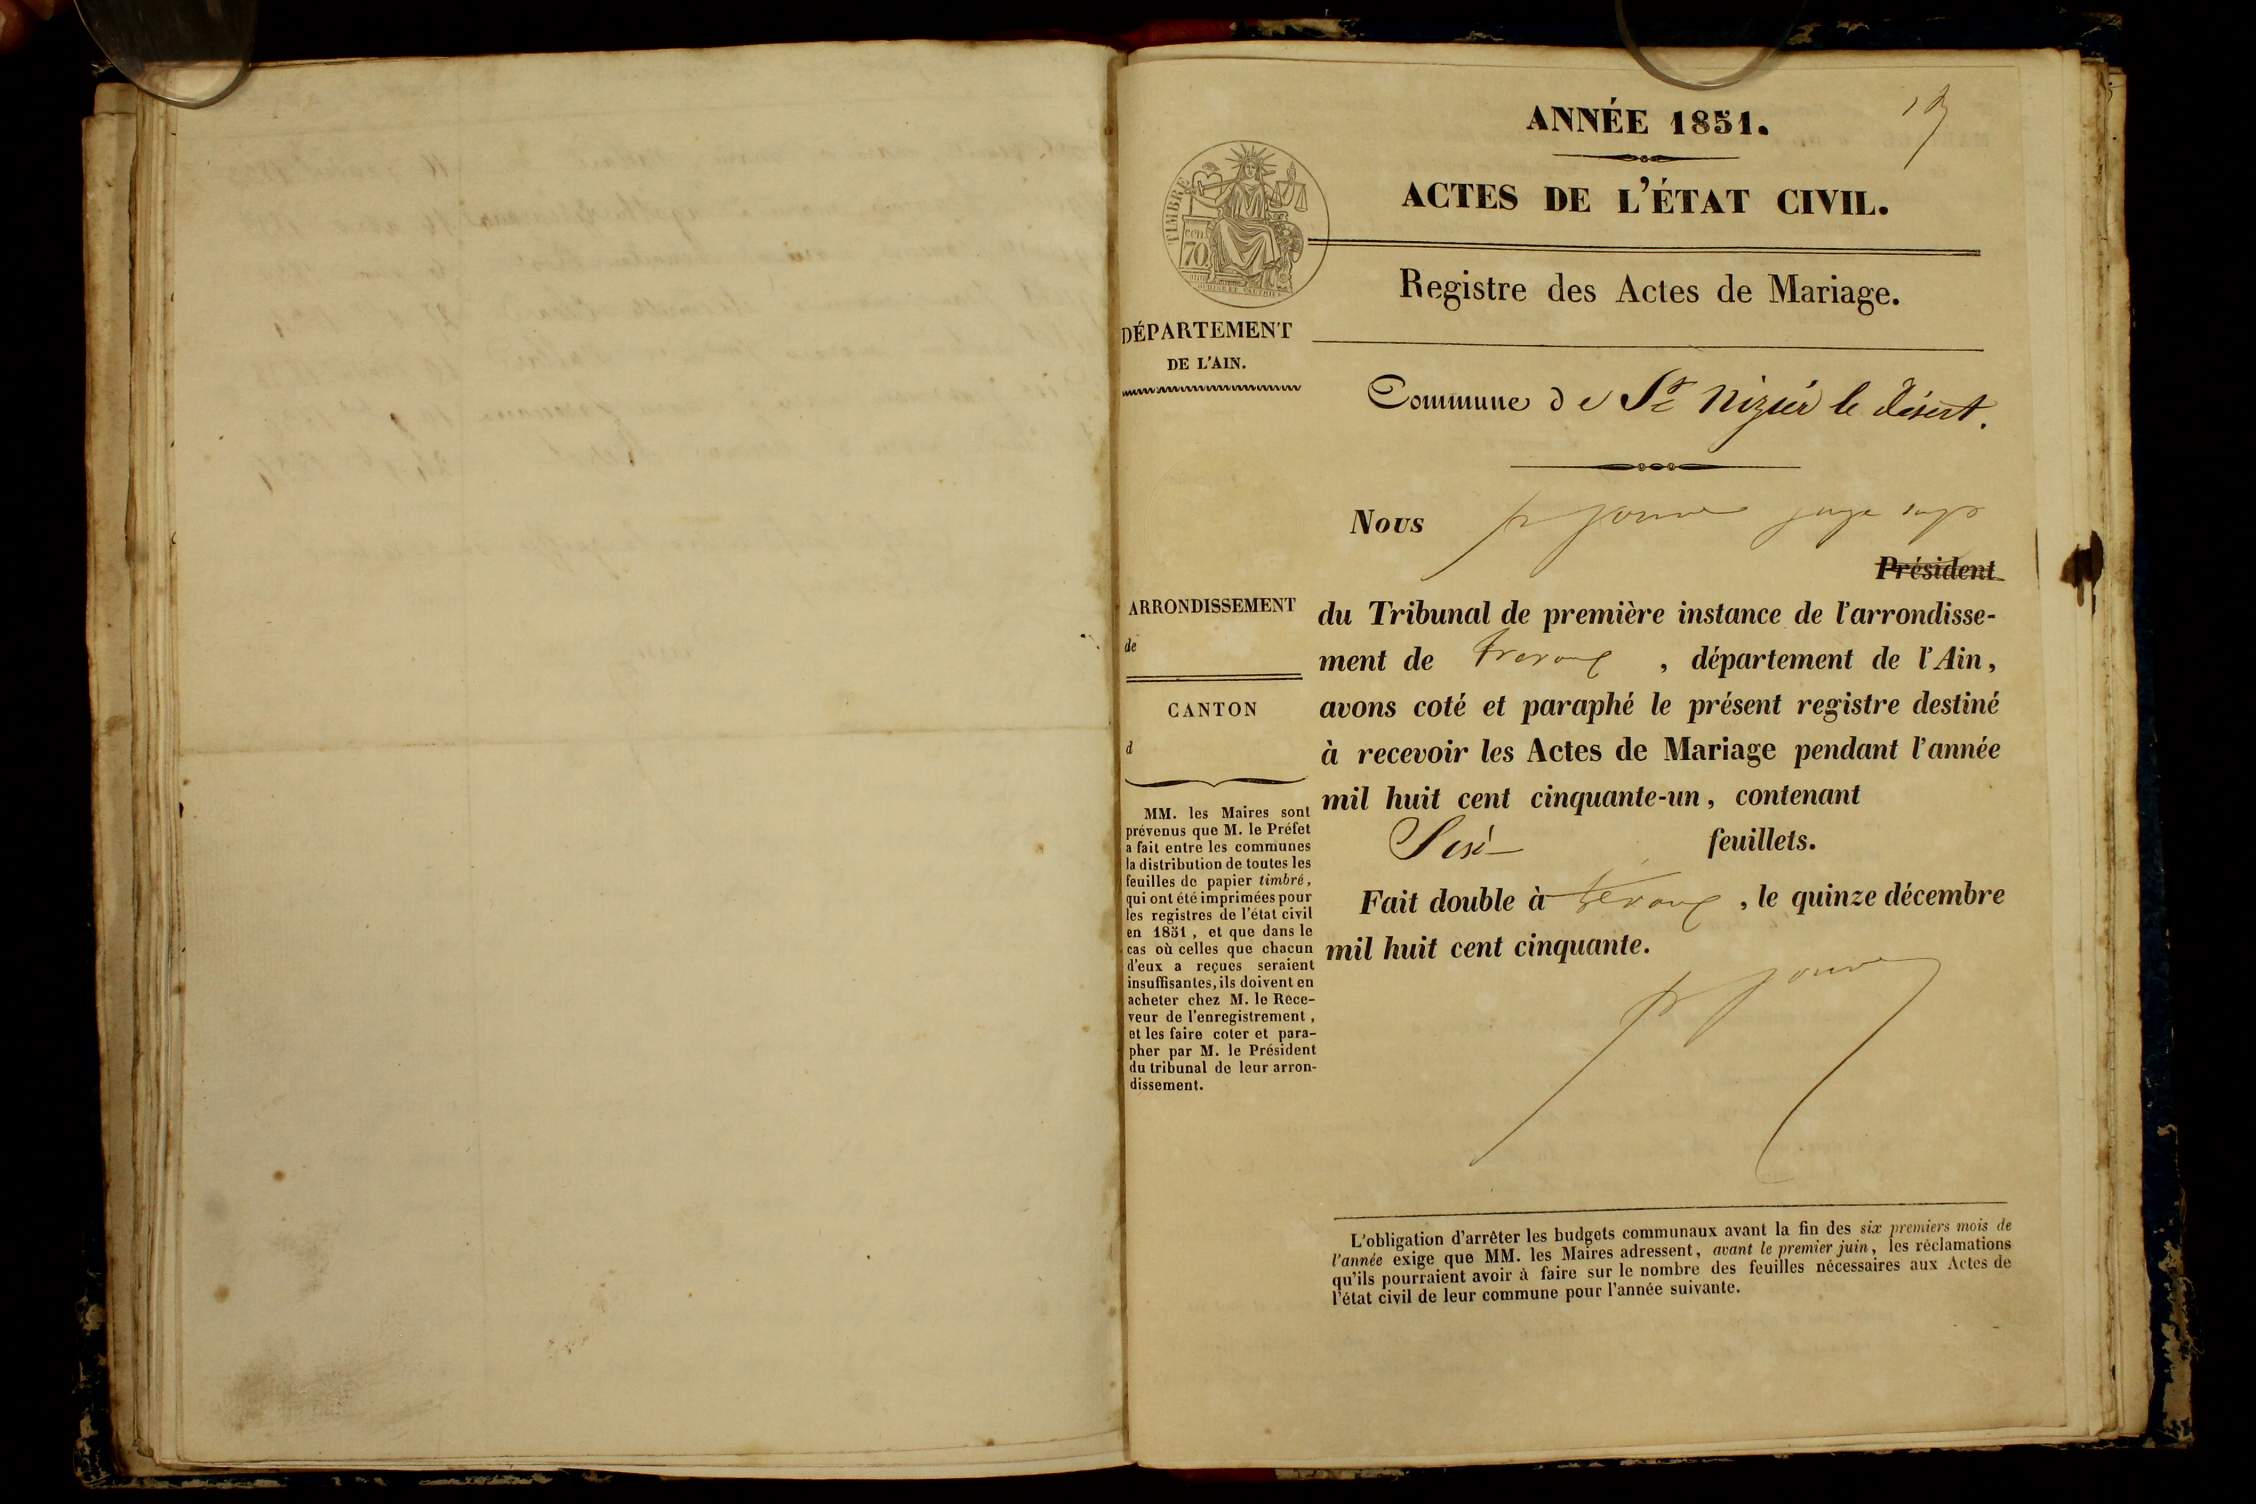 ANNÉE 1851.
ACTES DE L'ÉTAT CIVIL.
TIMBRE
70
Registre des Actes de Mariage.
DÉPARTEMENT
DE L'AIN.
Commune de St Nizier le désert.
Nous
Président
ARRONDISSEMENT
de
CANTON
d
du Tribunal de première instance de l'arrondisse-
ment de Trevoux, département de l'Ain,
avons coté et paraphé le présent registre destiné
à recevoir les Actes de Mariage pendant l'année
mil huit cent cinquante-un, contenant
Six feuillets.
Fait double à Trévoux, le quinze décembre
mil huit cent cinquante.
MM. les Maires sont
prévenus que M. le Préfet
a fait entre les communes
la distribution de toutes les
feuilles de papier timbré,
qui ont été imprimées pour
les registres de l'état civil
en 1851, et que dans le
cas où celles que chacun
d'eux a reçues seraient
insuffisantes, ils doivent en
acheter chez M. le Rece-
veur de l'enregistrement,
et les faire coter et para-
pher par M. le Président
du tribunal de leur arron-
dissement.
L'obligation d'arrêter les budgets communaux avant la fin des six premiers mois de
l'année exige que MM. les Maires adressent, avant le premier juin, les réclamations
qu'ils pourraient avoir à faire sur le nombre des feuilles nécessaires aux Actes de
l'état civil de leur commune pour l'année suivante.